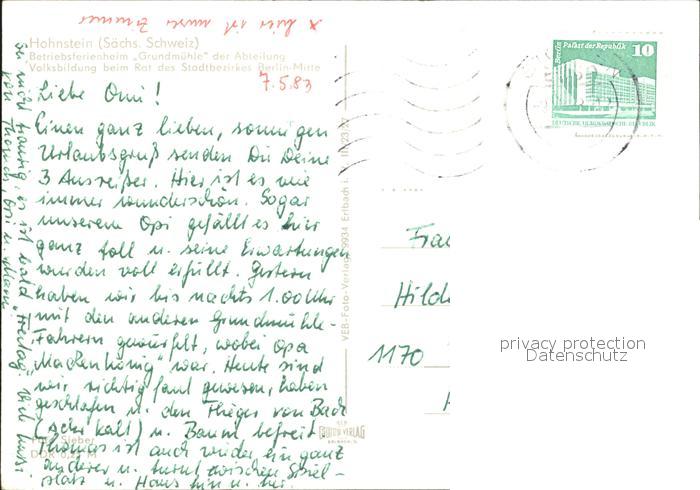 x hier ist unser Zimmer
Hohnstein (Sächs. Schweiz)
Betriebsferienheim „Grundmühle" der Abteilung
Volksbildung beim Rat des Stadtbezirkes Berlin-Mitte
7.5.83
Liebe Omi!
Einen ganz lieben, sonnigen
Urlaubsgruß senden Dir Deine
3 Ausreißer. Hier ist es wie
immer wunderschön. Sogar
unserem Opi gefällt es hier
ganz toll u. seine Erwartungen
wurden voll erfüllt. Gestern
haben wir bis nachts 1.00 Uhr
mit den anderen Grundmühle-
Fahrern gewürfelt, wobei Opa
„Mackenkönig" war. Heute sind
wir richtig faul gewesen, haben
geschlafen u. den Flieger von Bach
(sehr kalt) u. Baum befreit
Thomas ist auch wieder ein ganz
anderer u. turnt zwischen Spiel-
platz u. Haus hin u. her.
Sei nicht traurig, es ist bald Freitag. Dich
von Thomas, Opi u.
Sieber
DDR 0,20 M
VEB-Foto-Verlag 9934 Erlbach i.
Berlin Palast der Republik 10
DEUTSCHE DEMOKRATISCHE REPUBLIK
Frau
Hild
1170
VERLAG
privacy protection
Datenschutz